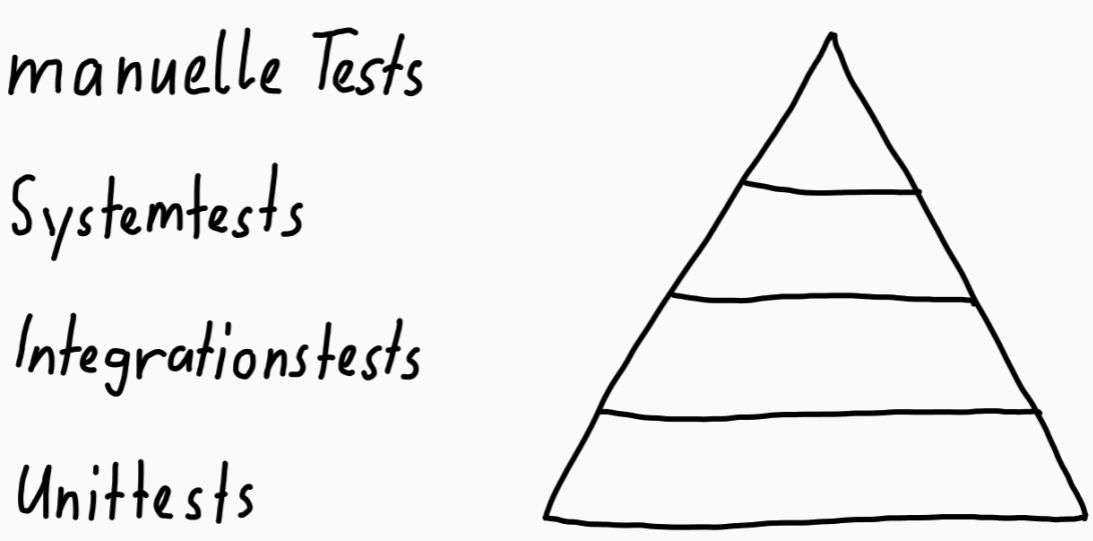 manuelle Tests
Systemtests
Integrationstests
Unittests